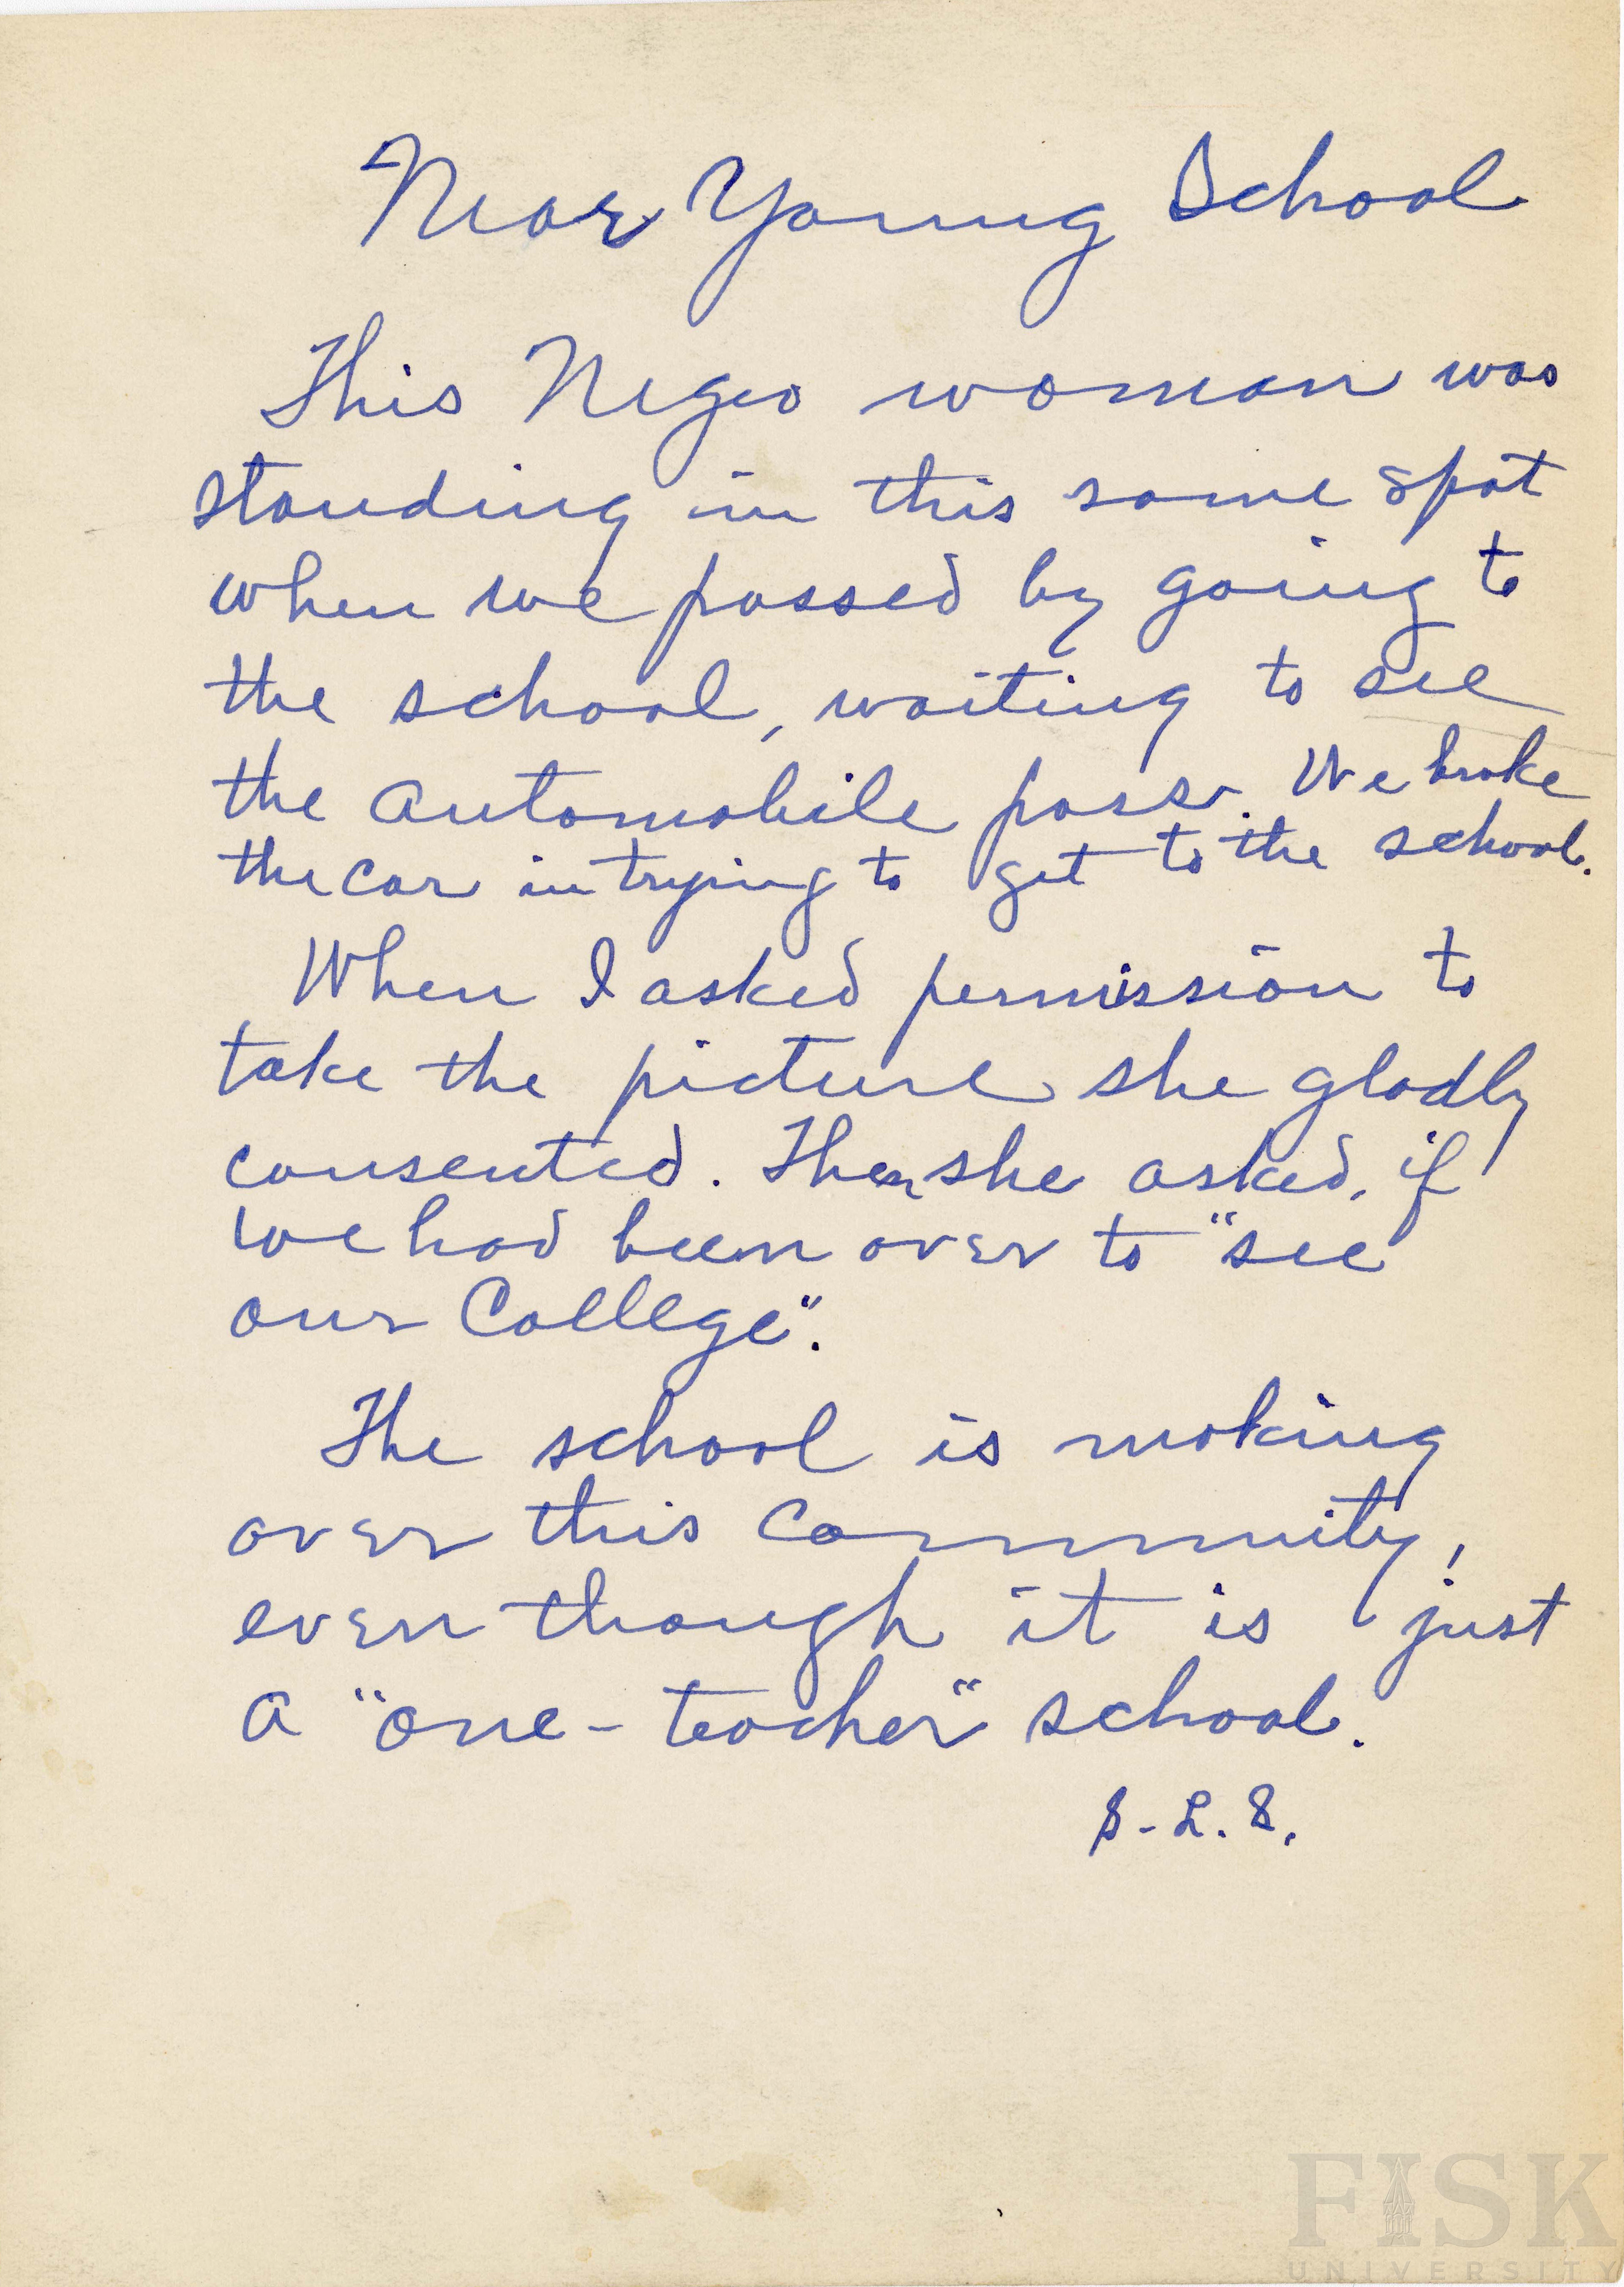 Near Young School
This Negro woman was
standing in this same spot
when we passed by going to
the school, waiting to see
the automobile pass. We broke
the car in trying to get to the school.
When I asked permission to
take the picture she gladly
consented. Then she asked, if
we had been over to "see
our College".
The school is making
over this community,
even though it is just
a "one-teacher" school.
S-L.S.
FISK
UNIVERSITY